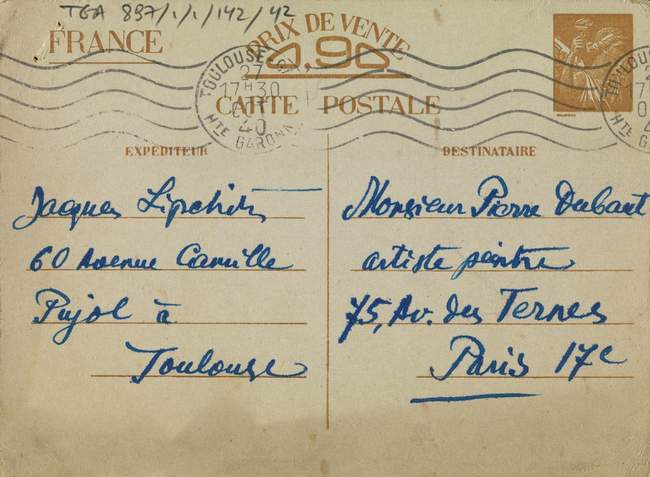 TGA 897/1/1/142/42
FRANCE
PRIX DE VENTE
0,90
CARTE POSTALE
TOULOUSE
17H30
40
HTE GARONNE
EXPÉDITEUR
Jacques Lipchitz
60 Avenue Camille
Pujol à
Toulouse
DESTINATAIRE
Monsieur Pierre Dubaut
artiste peintre
75, Av. des Ternes
Paris 17e